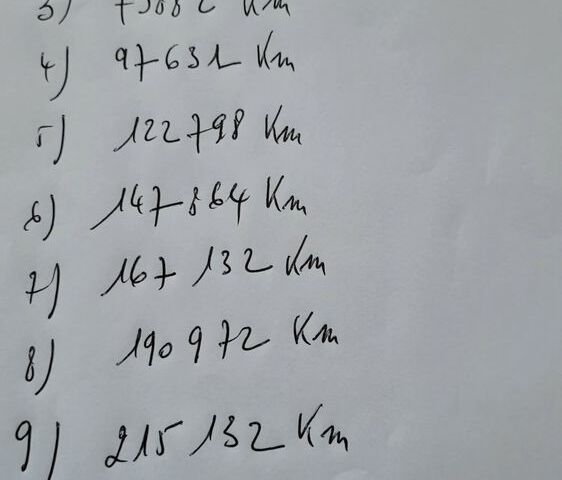 3) Km
4) 97631 Km
5) 122798 Km
6) 147864 Km
7) 167 132 Km
8) 190 972 Km
9) 215 132 Km